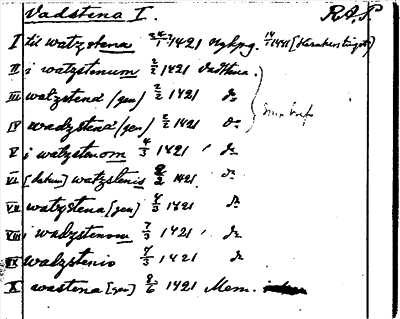 Vadstena I. RAP
I til watzstena 24/7 1421 Nykpg. 14/1 1441
II i watzstenum 2/2 1421 Vadstena.
III watzstena (gen) 2/2 1421 do
IV wadzstena (gen) 2/2 1421 do
V i watzstenom 4/3 1421 do
VI [datum] watzstenis 2/2 1421. do
VII watzstena [gen] 4/3 1421 do
VIII i wadzstenom 7/3 1421 do
IX wadzstenis 7/3 1421 do
X wastena [gen] 8/6 1421 Mem.